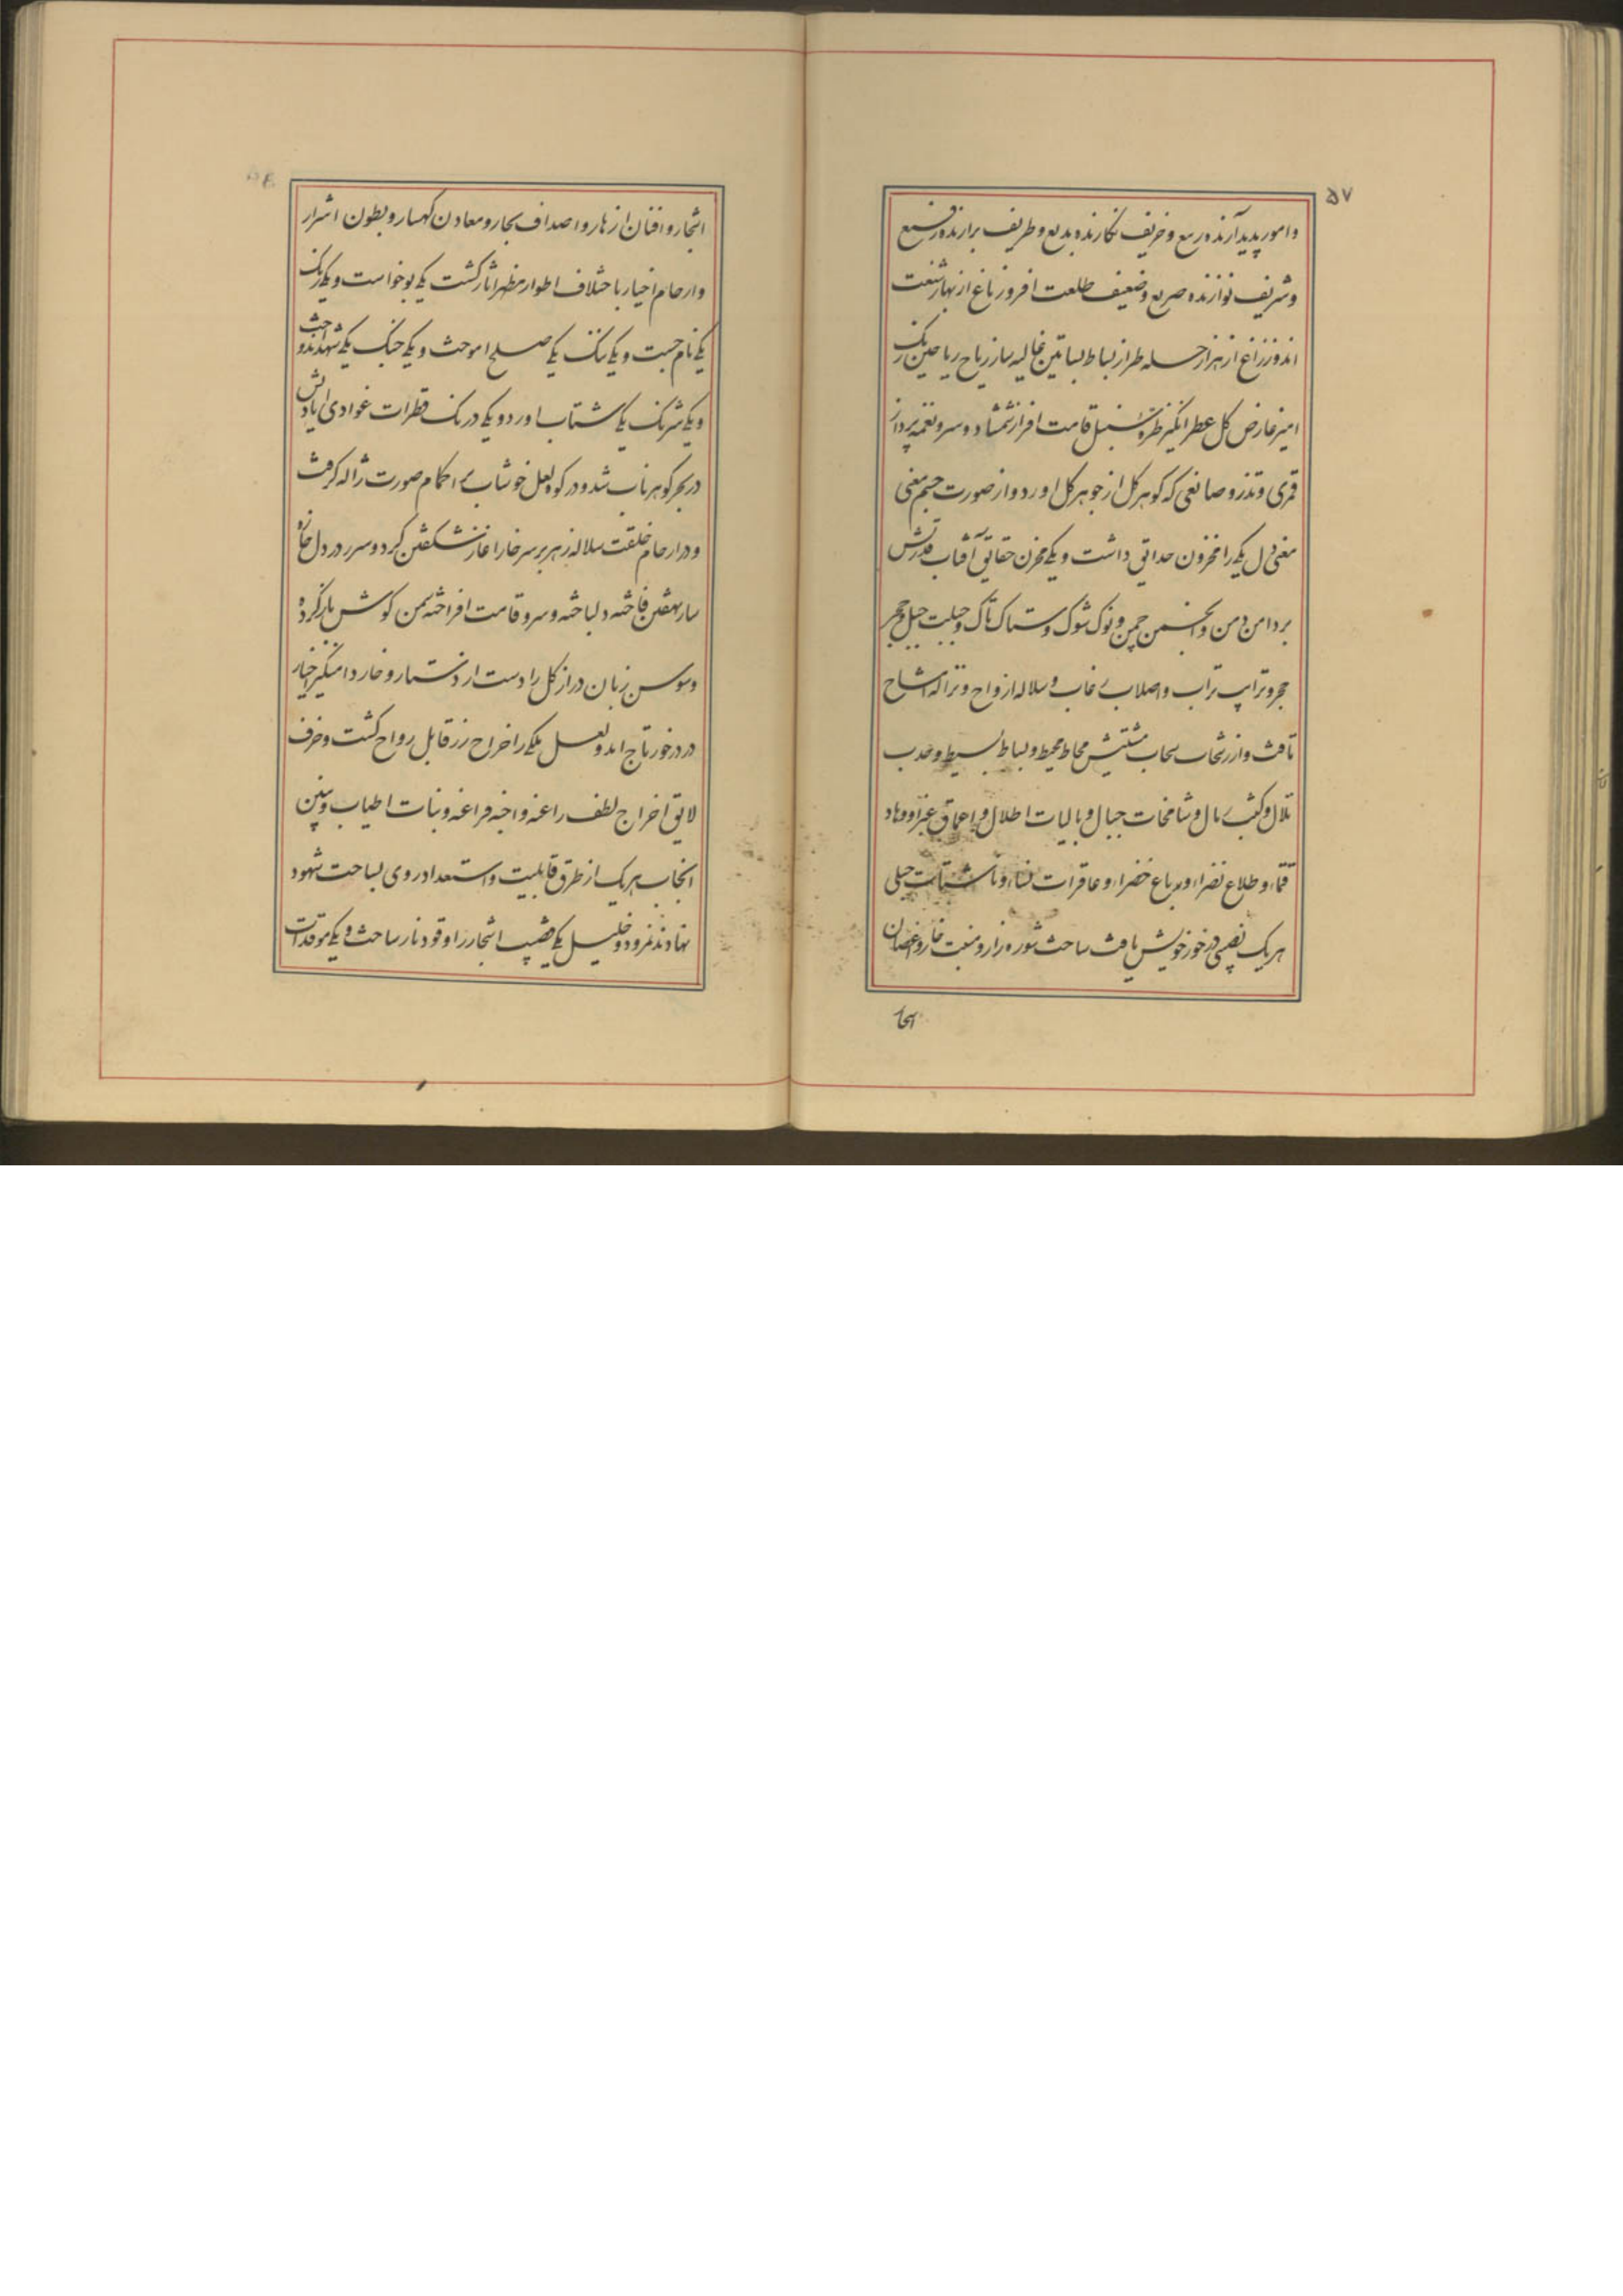 ۵۷
و امور پدید آرنده ربیع و خریف نگارنده بدیع و طریف برازنده رفیع
و شریف نوازنده صریع و ضعیف طلعت افروز باغ از بهار شنعت
اندوز زاغ از هزار حله طراز بساط بساتین غالیه ساز ریاح ریاحین رنک
امیز عارض کل عطر انکیز طره سنبل قامت افراز شمشاد و سرو نغمه پرداز
قمری و تذرو صانعی که کوهر کل از جوهر کل اورد و از صورت جسم معنی
معنی دل یکی را مخزون حدائق داشت و یکی مخزن حقایق آفتاب قدرتش
بر دامن دمن و انجمن چمن و نوک شوک و ستاک تاک و جبلت جبل و حجر
حجر و ترایب تراب و اصلاب غاب و سلاله ارواح و اشباح
تافت و از رشحات سحاب مشیتش محاط محیط و بساط بسیط و حدب
تلال و کثب رمال و شامخات جبال و بالیات اطلال و اعماق و وهاد
و طلاع نضراء و رباع خضراء و عاقرات نساء و جبلی
هریک نصیبی در خور خویش یافت ساحت شوره زار و منبت خار و اغصان
اشجار
اشجار و افنان ازهار و اصداف بحار و معادن کهسار و بطون اشرار
و ارحام اخیار باختلاف اطوار مظهر اثار کشت یکی بو خواست و یکی رنک
یکی نام جست و یکی ننک یکی صلح اموخت و یکی جنک یکی شهد اندوخت
و یکی شرنک یکی شتاب اورد و یکی درنک قطرات غوادی ایادیش
در بحر کوهر ناب شد و در کوه لعل خوشاب اکمام صورت ژاله کرفت
و در ارحام خلقت سلاله زهر بر سر خار اغاز شکفتن کرد و سر در دل خاره
ساز نهفتن فاخته دلباخته و سرو قامت افراخته سمن کوش باز کرده
و سوسن زبان دراز کل را دست ار دستار و خار دامنکیر اخیار
در در خور تاج امد و لعل یکی را خراج زر قابل رواج کشت و خزف
لایق اخراج لطف راغه و اجنه فراغه و بنات اطیاب و بنین
انجاب هریک از طرق قابلیت و استعداد روی بساحت شهود
نهادند نمرود و خلیل یکی قضیب اشجار را وقود نار ساخت و یکی موقدات